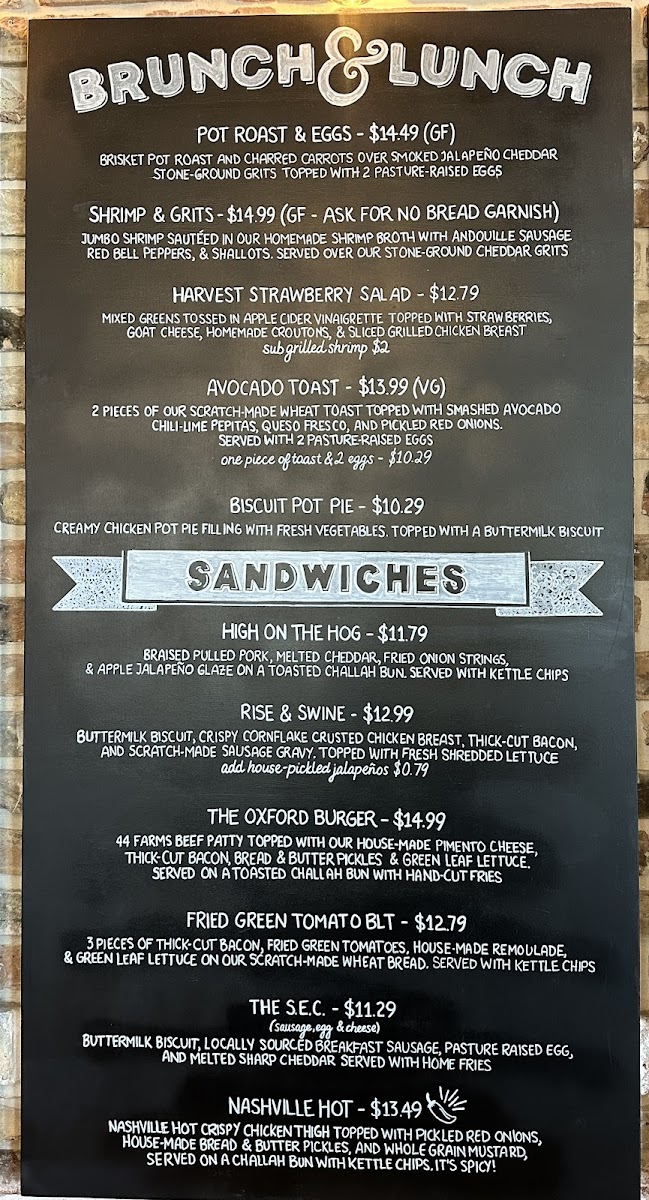 BRUNCH & LUNCH
POT ROAST & EGGS - $14.49 (GF)
BRISKET POT ROAST AND CHARRED CARROTS OVER SMOKED JALAPEÑO CHEDDAR
STONE-GROUND GRITS TOPPED WITH 2 PASTURE-RAISED EGGS
SHRIMP & GRITS - $14.99 (GF - ASK FOR NO BREAD GARNISH)
JUMBO SHRIMP SAUTÉED IN OUR HOMEMADE SHRIMP BROTH WITH ANDOUILLE SAUSAGE
RED BELL PEPPERS, & SHALLOTS. SERVED OVER OUR STONE-GROUND CHEDDAR GRITS
HARVEST STRAWBERRY SALAD - $12.79
MIXED GREENS TOSSED IN APPLE CIDER VINAIGRETTE TOPPED WITH STRAWBERRIES,
GOAT CHEESE, HOMEMADE CROUTONS, & SLICED GRILLED CHICKEN BREAST
sub grilled shrimp $2
AVOCADO TOAST - $13.99 (VG)
2 PIECES OF OUR SCRATCH-MADE WHEAT TOAST TOPPED WITH SMASHED AVOCADO
CHILI-LIME PEPITAS, QUESO FRESCO, AND PICKLED RED ONIONS.
SERVED WITH 2 PASTURE-RAISED EGGS
one piece of toast & 2 eggs - $10.29
BISCUIT POT PIE - $10.29
CREAMY CHICKEN POT PIE FILLING WITH FRESH VEGETABLES. TOPPED WITH A BUTTERMILK BISCUIT
SANDWICHES
HIGH ON THE HOG - $11.79
BRAISED PULLED PORK, MELTED CHEDDAR, FRIED ONION STRINGS,
& APPLE JALAPEÑO GLAZE ON A TOASTED CHALLAH BUN. SERVED WITH KETTLE CHIPS
RISE & SWINE - $12.99
BUTTERMILK BISCUIT, CRISPY CORNFLAKE CRUSTED CHICKEN BREAST, THICK-CUT BACON,
AND SCRATCH-MADE SAUSAGE GRAVY. TOPPED WITH FRESH SHREDDED LETTUCE
add house-pickled jalapeños $0.79
THE OXFORD BURGER - $14.99
44 FARMS BEEF PATTY TOPPED WITH OUR HOUSE-MADE PIMENTO CHEESE,
THICK-CUT BACON, BREAD & BUTTER PICKLES & GREEN LEAF LETTUCE.
SERVED ON A TOASTED CHALLAH BUN WITH HAND-CUT FRIES
FRIED GREEN TOMATO BLT - $12.79
3 PIECES OF THICK-CUT BACON, FRIED GREEN TOMATOES, HOUSE-MADE REMOULADE,
& GREEN LEAF LETTUCE ON OUR SCRATCH-MADE WHEAT BREAD. SERVED WITH KETTLE CHIPS
THE S.E.C. - $11.29
(sausage, egg & cheese)
BUTTERMILK BISCUIT, LOCALLY SOURCED BREAKFAST SAUSAGE, PASTURE RAISED EGG,
AND MELTED SHARP CHEDDAR SERVED WITH HOME FRIES
NASHVILLE HOT - $13.49
NASHVILLE HOT CRISPY CHICKEN THIGH TOPPED WITH PICKLED RED ONIONS,
HOUSE-MADE BREAD & BUTTER PICKLES, AND WHOLE GRAIN MUSTARD,
SERVED ON A CHALLAH BUN WITH KETTLE CHIPS. IT'S SPICY!